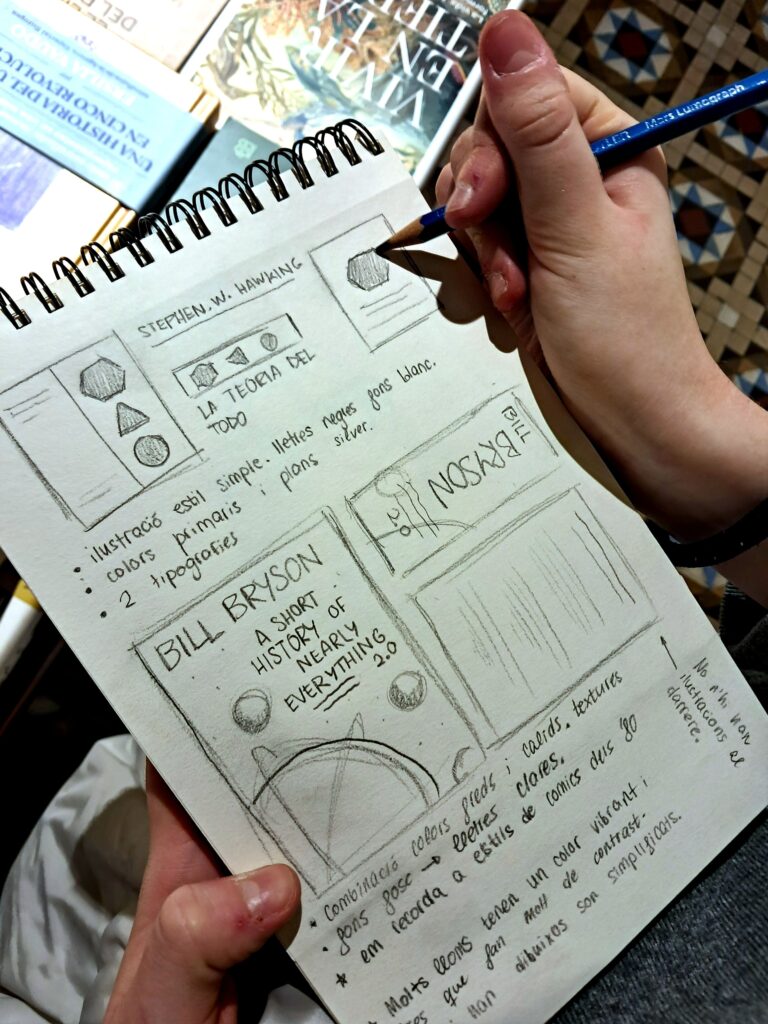 VIVIR
EN LA
UNA HISTORIA DEL
EN CINCO
Mars Lumograph
STEPHEN. W. HAWKING
LA TEORIA DEL
TODO
• ilustració estil simple. lletres negres fons blanc.
• colors primaris i plans
• 2 tipografies
BILL BRYSON
BILL BRYSON
A SHORT
HISTORY OF
NEARLY
EVERYTHING
2.0
No n'hi han
ilustracions al
darrere.
* combinació colors freds i calids. textures
• fons fosc → lletres clares.
em recorda a estils de comics dels 80
* Molts lloms tenen un color vibrant i
que fan molt de contrast.
dibuixos son simplificats.